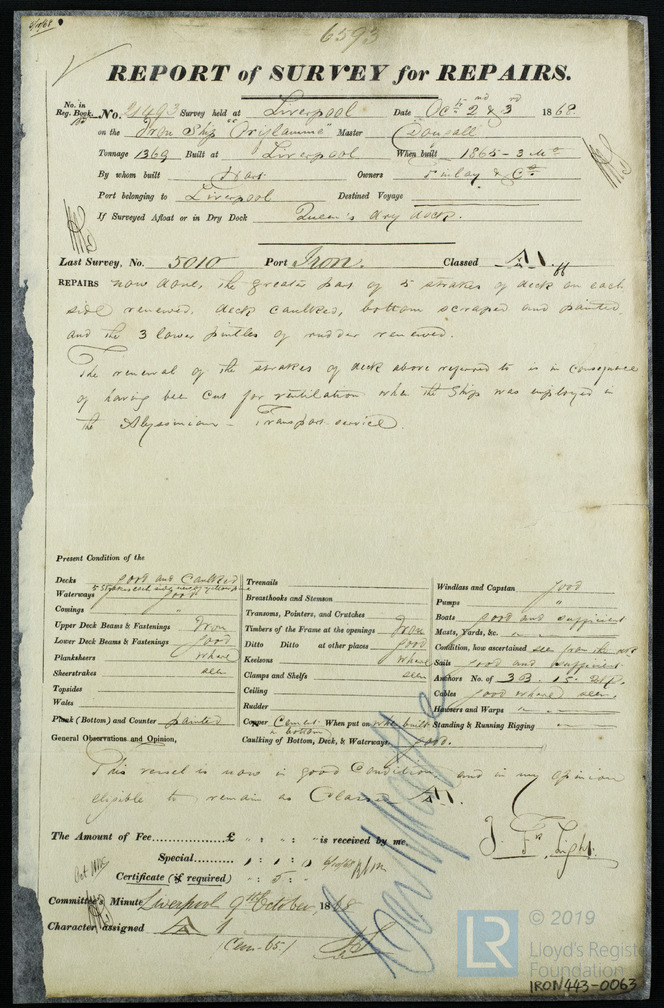 6593
REPORT of SURVEY for REPAIRS.
No. in Reg. Book. No. Survey held at Liverpool Date Oct. 2nd & 3rd 1868
on the Iron Ship "Oriflamme" Master Dougall
Tonnage 1369 Built at Liverpool When built 1865-3 Mo
By whom built Owners Finlay & Co.
Port belonging to Liverpool Destined Voyage
If Surveyed Afloat or in Dry Dock Queen's dry dock.
Last Survey, No. 5010 Port Iron. Classed A1.
REPAIRS now done, the greater part of 5 strakes of deck on each
side renewed, deck caulked, bottom scraped and painted,
and the 3 lower pintles of rudder renewed.
The renewal of the strakes of deck above referred to is in consequence
of having been cut for ventilation when the ship was employed in
the Abyssinian - Transport service.
Present Condition of the
Decks good and Caulked
Waterways good
Comings "
Upper Deck Beams & Fastenings Iron
Lower Deck Beams & Fastenings good
Planksheers where
Sheerstrakes seen
Topsides
Wales
Plank (Bottom) and Counter painted
Treenails
Breasthooks and Stemson
Transoms, Pointers, and Crutches
Timbers of the Frame at the openings Iron
Ditto Ditto at other places good
Keelsons where
Clamps and Shelfs seen
Ceiling
Rudder
Copper Cement in bottom When put on when built
Caulking of Bottom, Deck, & Waterways good.
Windlass and Capstan good
Pumps "
Boats good and sufficient
Masts, Yards, &c.
Condition, how ascertained seen from the deck
Sails good and sufficient
Anchors No. of 3 B. 1 S. 2 K.
Cables good where seen,
Hawsers and Warps "
Standing & Running Rigging
General Observations and Opinion,
This vessel is now in good Condition and in my opinion
eligible to remain as Classed A1.
The Amount of Fee £ " : " : " is received by me.
Special 1 : 1 : 0
Certificate (if required) " : 5 : "
Committee's Minute Liverpool 9th October, 1868
Character assigned A 1
© 2019
LR
Lloyd's Register
Foundation
IRON443-0063